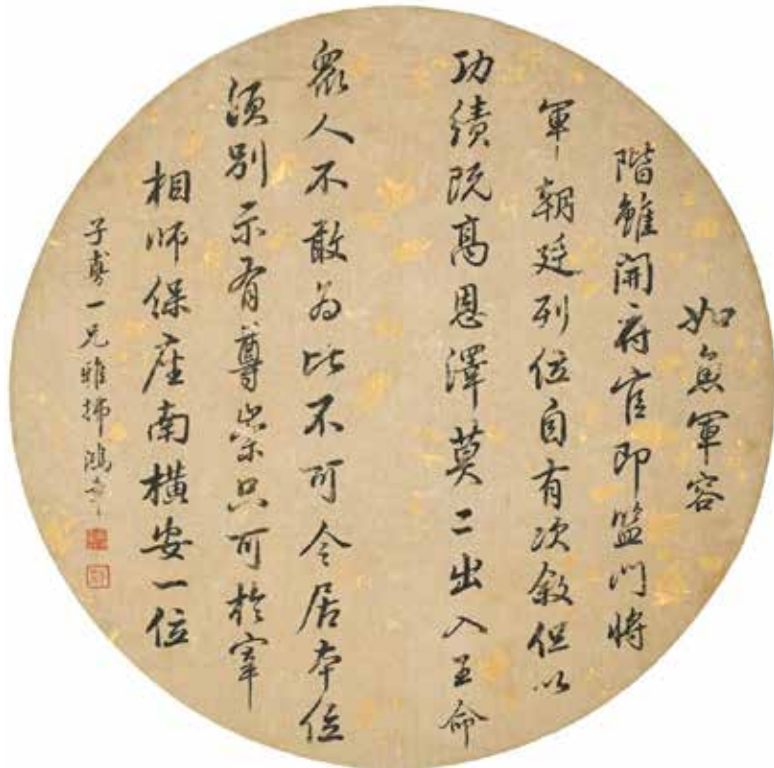 如魚軍容
階雖開府官即監門將
軍朝廷列位自有次敘但以
功績既高恩澤莫二出入王命
眾人不敢為比不可令居本位
須別示有尊崇只可於宰
相師保座南橫安一位
子尃一兄雅拂 鴻章